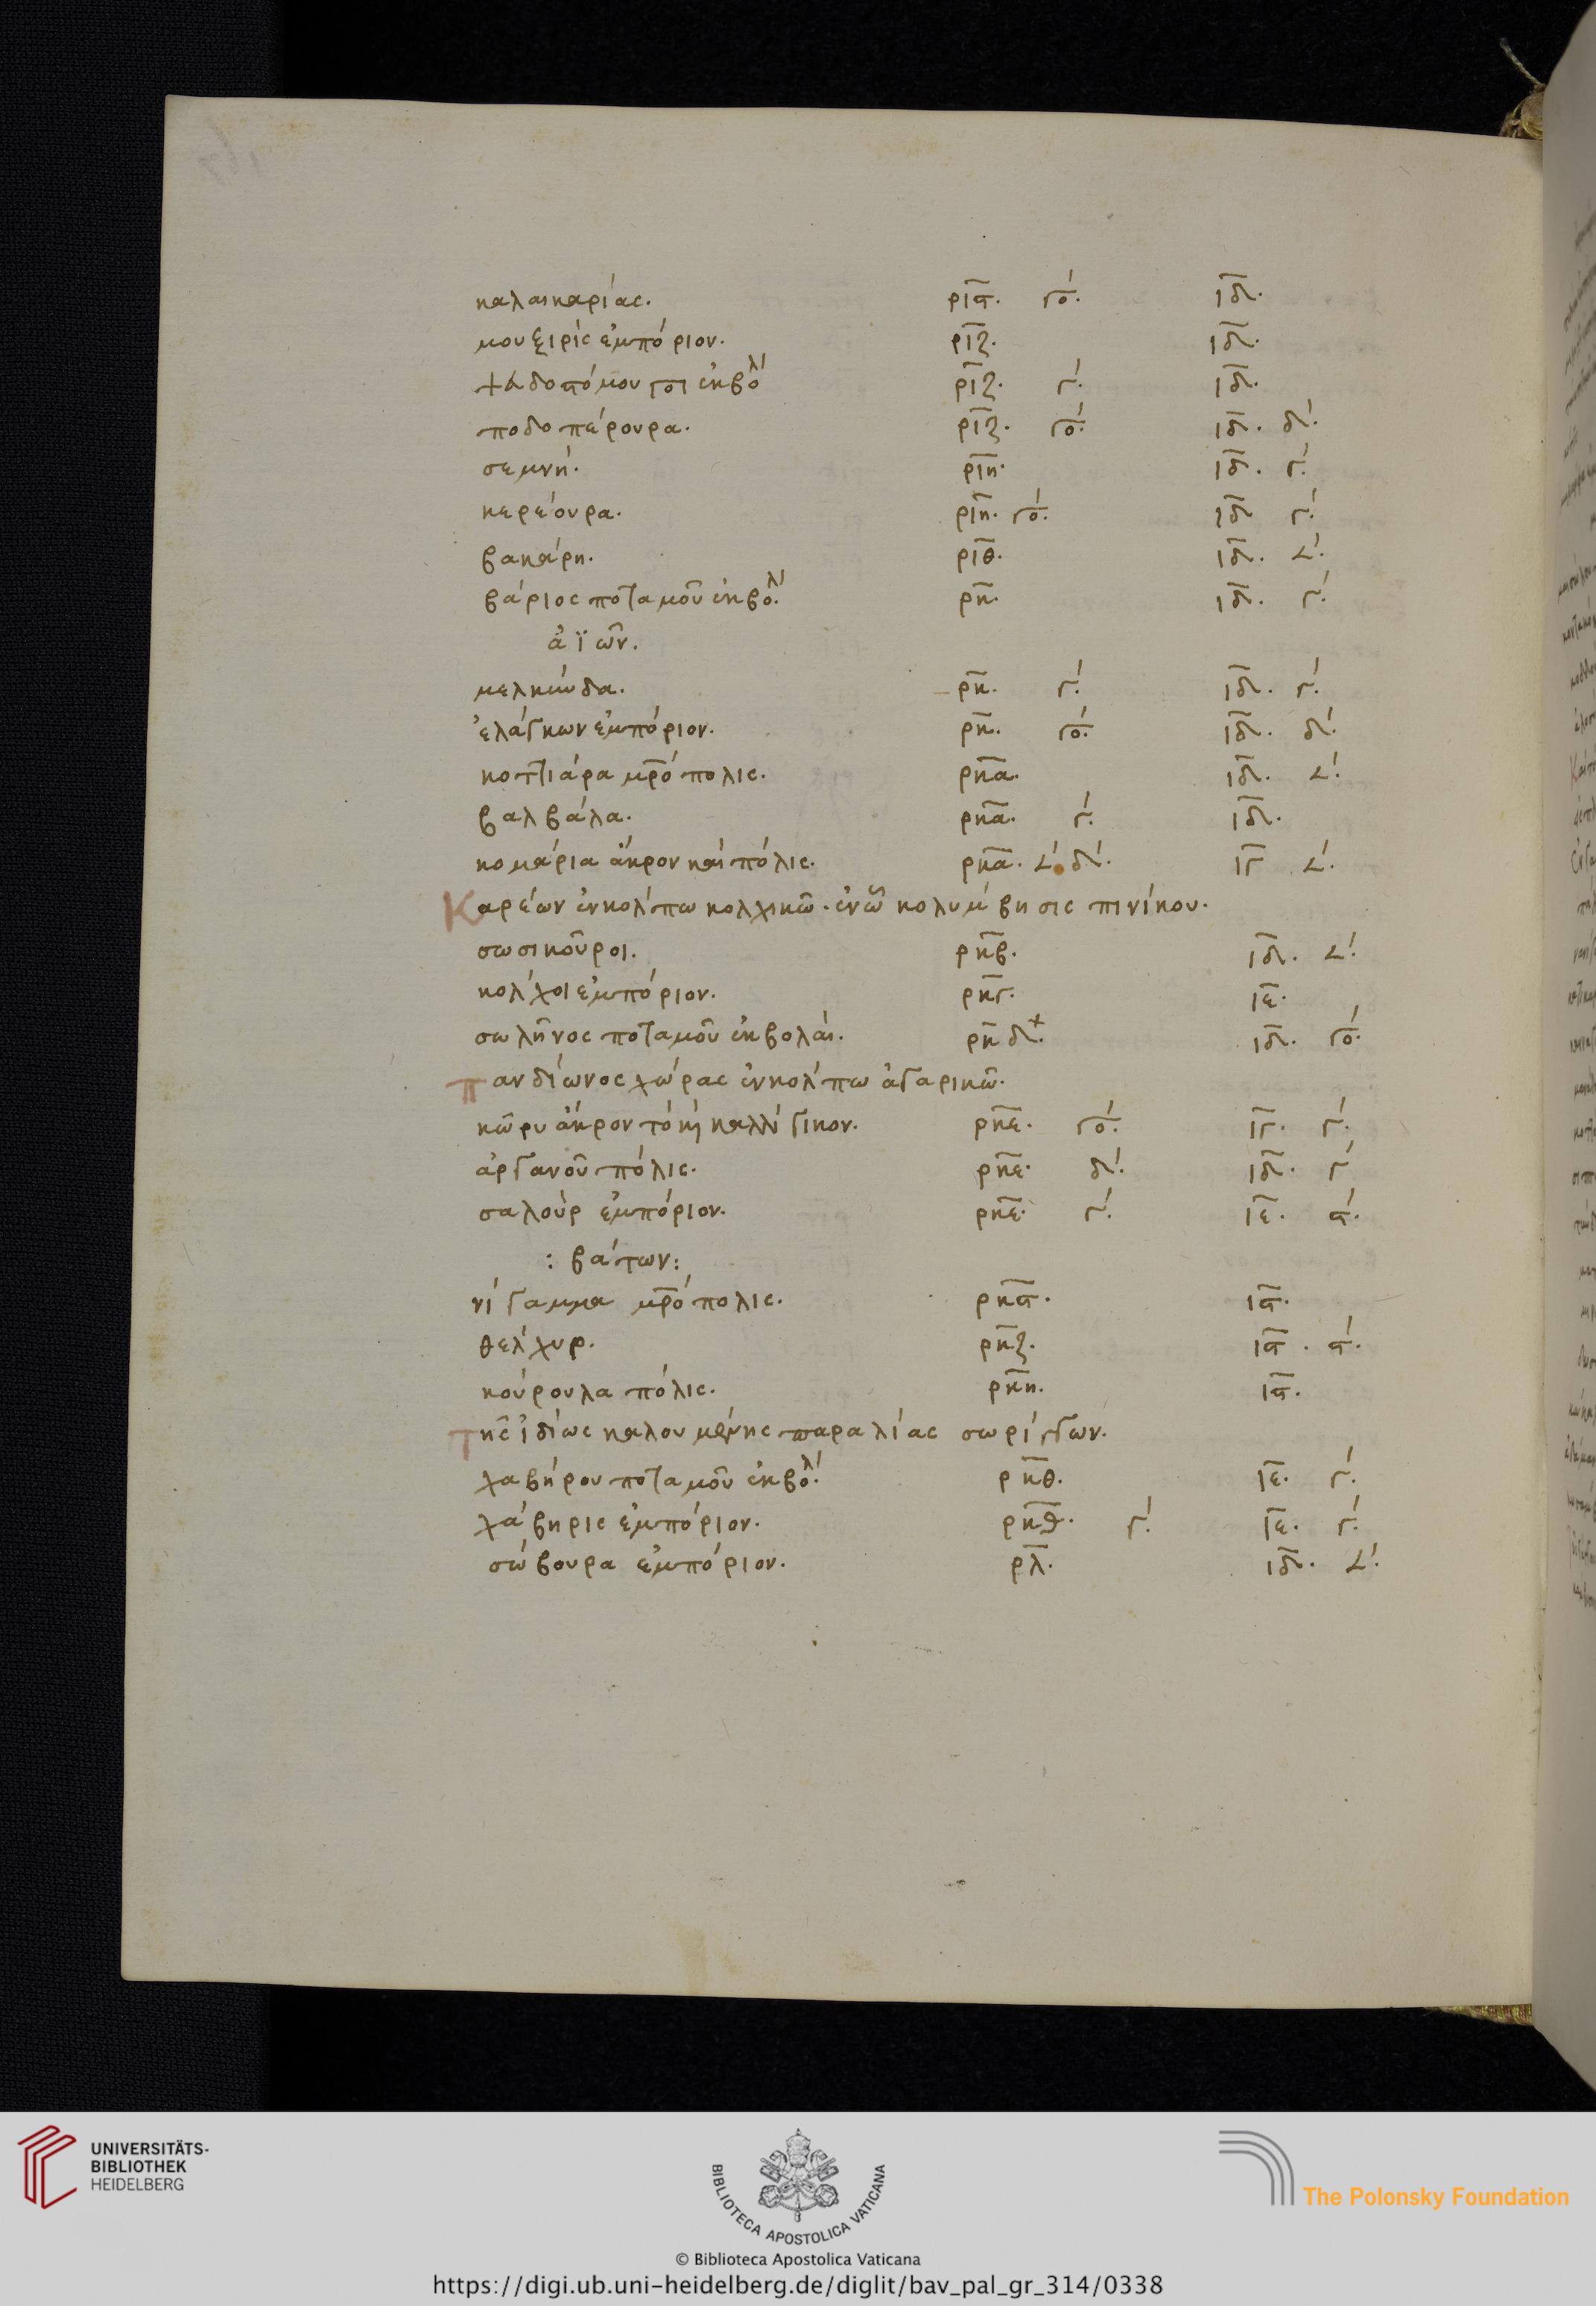 καλαικαρίας. ριϛ. γο. ιδ.
μουξιρὶς ἐμπόριον. ριζ. ιδ.
ἐκβολ ριζ. γ. ιδ.
ποδοπέρουρα. ριζ. γο. ιδ. δ.
σεμνή. ριη. ιδ. γ.
κερέουρα. ριη. γο. ιδ γ.
βακάρη. ριθ. ιδ. 𐅵.
βάριος ποταμοῦ ἐκβολ. ρκ. ιδ. γ.
ἀϊῶν.
μελκύνδα. ρκ. γ. ιδ. γ.
ἐλάγκων ἐμπόριον. ρκ. γο. ιδ. δ.
κοττιάρα μρόπολις. ρκα. ιδ. 𐅵.
βαλβάλα. ρκα. γ. ιδ.
κομάρια ἄκρον καὶ πόλις. ρκα. 𐅵 δ. ιγ 𐅵.
Καρέων ἐν κόλπω κολχικῶ. ἐν ὧ κολύμβησις πινίκου.
σωσικοῦροι. ρκβ. ιδ. 𐅵.
κόλχοι ἐμπόριον. ρκγ. ιε.
σωλῆνος ποταμοῦ ἐκβολαί. ρκδ. ιδ. γο.
πανδίωνος χώρας ἐν κόλπω ἀγαρικῶ.
κῶρυ ἄκρον τὸ κὶ καλλιγικον. ρκε. γο. ιγ. γ.
ἀργανοῦ πόλις. ρκε. δ. ιδ. γ
σαλοὺρ ἐμπόριον. ρκε. γ. ιε. ϛ.
: βάτων:
νίγαμμα μρόπολις. ρκϛ. ιϛ.
θελχυρ. ρκζ. ιϛ. ϛ.
κούρουλα πόλις. ρκη. ιϛ.
τῆς ἰδίως καλουμένης παραλίας σωρίγγων.
χαβήρου ποταμοῦ ἐκβολ. ρκθ. ιε. γ.
χάβηρις ἐμπόριον. ρκθ. γ. ιε. γ.
σώβουρα ἐμπόριον. ρλ. ιδ. 𐅵.
UNIVERSITÄTS-
BIBLIOTHEK
HEIDELBERG
BIBLIOTECA APOSTOLICA VATICANA
The Polonsky Foundation
© Biblioteca Apostolica Vaticana
https://digi.ub.uni-heidelberg.de/diglit/bav_pal_gr_314/0338